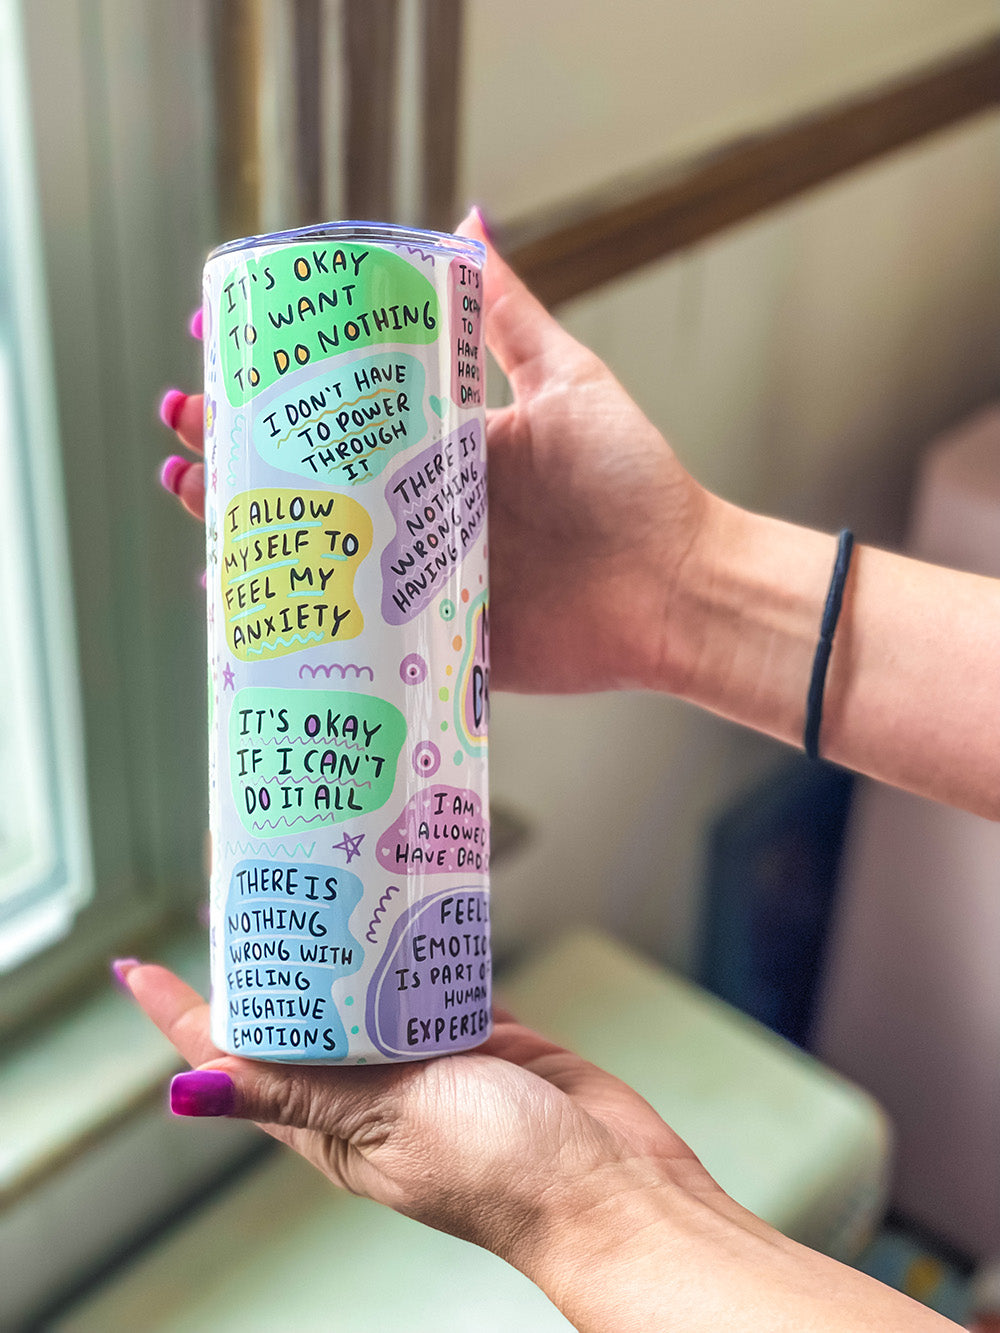 IT'S OKAY
TO WANT
TO DO NOTHING
IT'S
OKAY
TO
HAVE
HARD
DAYS
I DON'T HAVE
TO POWER
THROUGH
IT
THERE IS
NOTHING
WRONG WITH
HAVING ANXIETY
I ALLOW
MYSELF TO
FEEL MY
ANXIETY
IT'S OKAY
IF I CAN'T
DO IT ALL
I AM
ALLOWED
HAVE BAD
THERE IS
NOTHING
WRONG WITH
FEELING
NEGATIVE
EMOTIONS
FEELI
EMOTIO
IS PART O
HUMAN
EXPERIEN